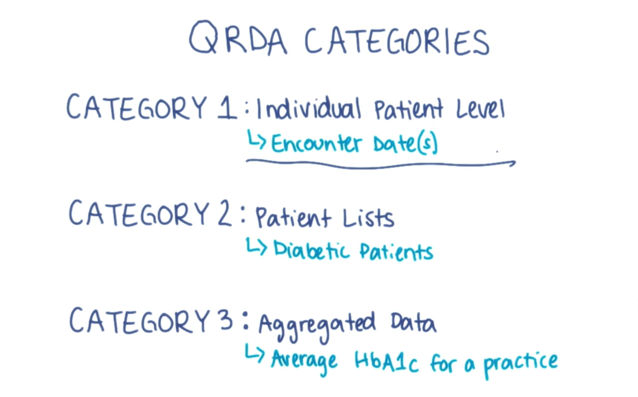 QRDA CATEGORIES
CATEGORY 1: Individual Patient Level
↳ Encounter Date(s)
CATEGORY 2: Patient Lists
↳ Diabetic Patients
CATEGORY 3: Aggregated Data
↳ Average HbA1c for a practice